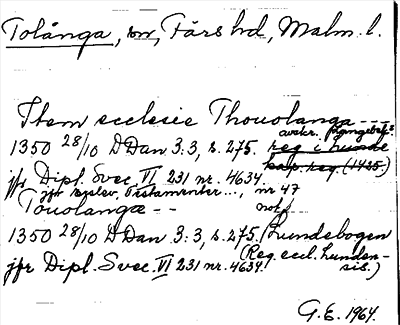 Tolånga, sn, Färs hd, Malm. l.
Item ecclesie Thouolanga ---
avskr.
1350 28/10 DDan 3:3, s. 275. reg i lunde
kap. reg. (1425.)
jfr Dipl. Svec. VI 231 nr. 4634.
jfr Erslev, Testamenter..., nr 47
Touolangæ -- not
1350 28/10 DDan 3:3, s. 275. (Lundebogen
(Reg. eccl. Lunden-
jfr Dipl. Svec. VI 231 nr. 4634. sis.)
G.E. 1964.